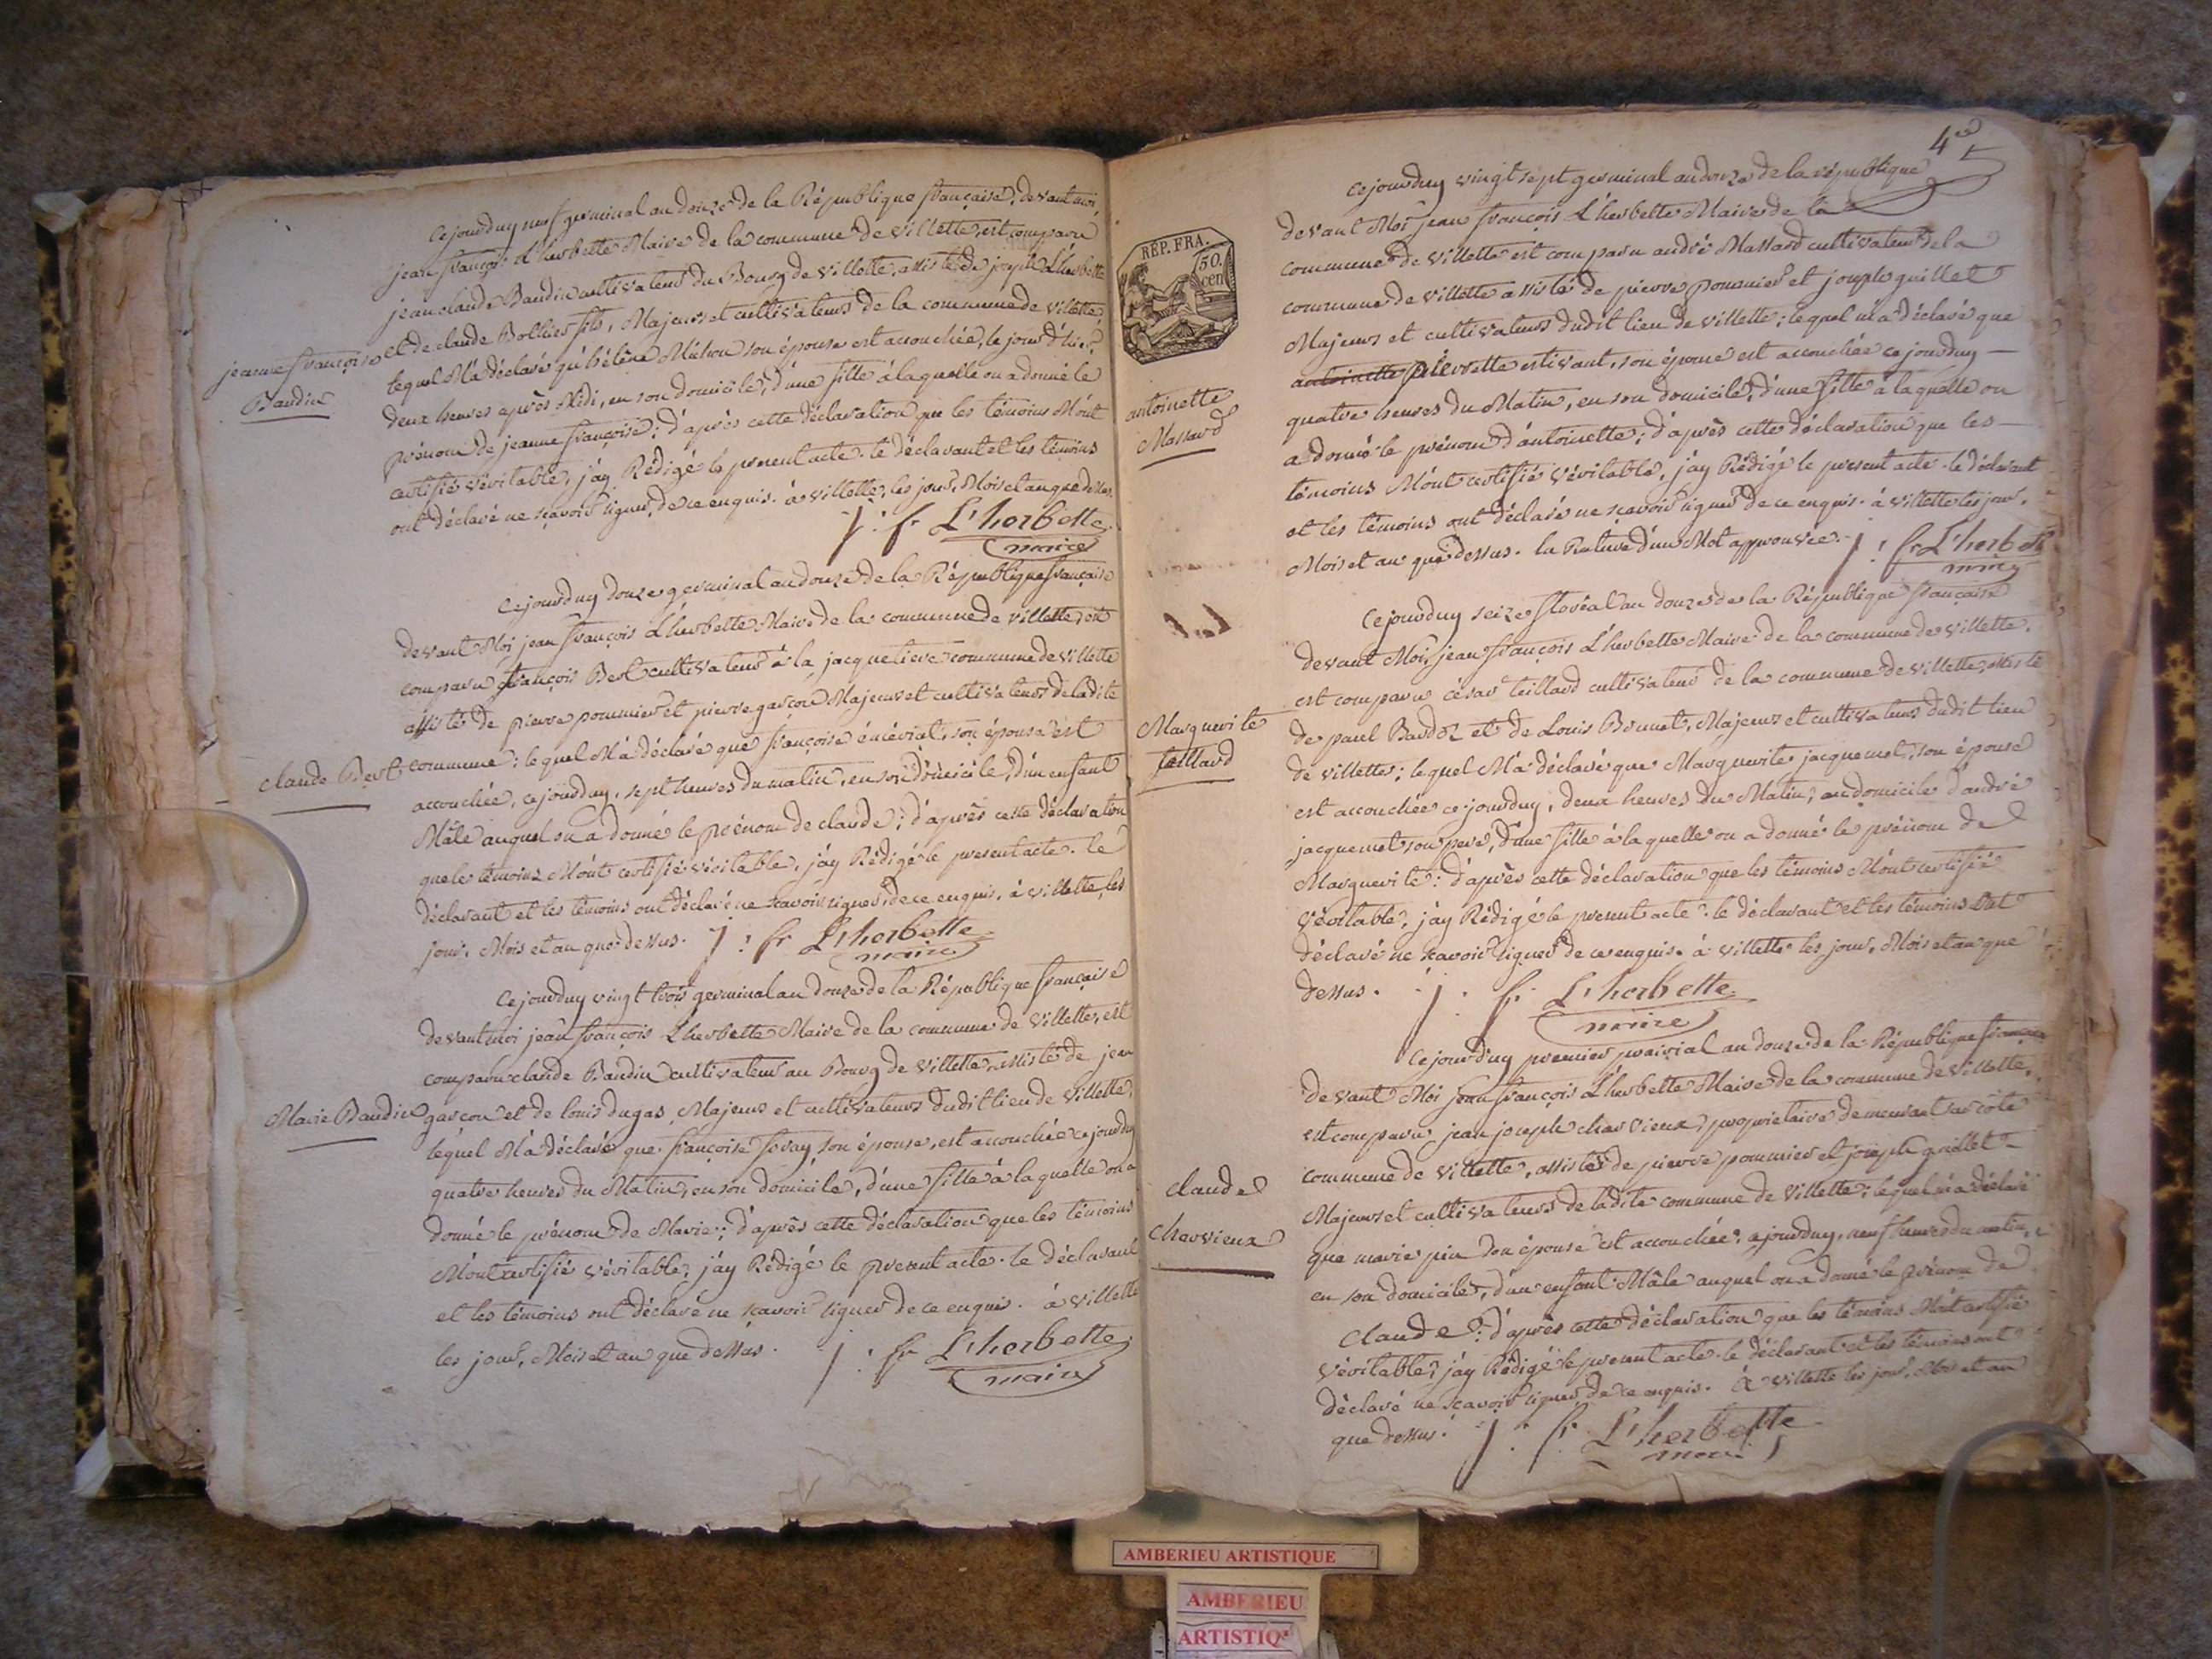 Cejourduy neuf germinal an douze de la République française, devant moi
jean françois L'herbette Maire de la commune de Villette, est comparu
jean claude Baudin cultivateur du Bourg de Villette, assisté de joseph L'herbette
et de claude Bollier fils, Majeurs et cultivateurs de la commune de Villette,
jeanne françoise
Baudin
lequel M'a déclaré qu'hélène son épouse est accouchée, le jour d'hier
deux heures après Midi, en son domicile, d'une fille à laquelle on a donné le
prénom de jeanne françoise; d'après cette déclaration que les témoins M'ont
certifié véritable, j'ay Rédigé le present acte. le déclarant et les témoins
ont déclaré ne sçavoir signer, de ce enquis. à Villette, les jour, Mois et an que dessus.
j : fr L'herbette
maire
Cejourduy douze germinal an douze de la République française
devant Moi jean françois L'herbette Maire de la commune de Villette, est
comparu françois Bert cultivateur à la jacquetiere commune de Villette
assisté de pierre pommier et pierre garcon Majeurs et cultivateurs de ladite
claude Bert
commune; lequel M'a déclaré que françoise son épouse est
accouchée, cejourduy, sept heures du matin, en son domicile, d'un enfant
Mâle auquel on a donné le prénom de claude; d'après cette déclaration
que les témoins M'ont certifié véritable, j'ay Rédigé le present acte. le
déclarant et les témoins ont déclaré ne scavoir signer, de ce enquis, à Villette, les
jour, Mois et an que dessus. j : fr L'herbette
maire
Cejourduy vingt trois germinal an douze de la République française
devant moi jean françois L'herbette Maire de la commune de Villette, est
comparu claude Baudin cultivateur au Bourg de Villette, assisté de jean
Marie Baudin
garcon et de louis dugas, Majeurs et cultivateurs dudit lieu de Villette,
lequel M'a déclaré que françoise son épouse, est accouchée cejourduy
quatre heures du Matin, en son domicile, d'une fille à laquelle on a
donné le prénom de Marie; d'après cette déclaration que les témoins
M'ont certifié véritable, j'ay Rédigé le present acte. le déclarant
et les témoins ont déclaré ne scavoir signer de ce enquis. à Villette
les jour, Mois et an que dessus. j : fr L'herbette
maire
4e
Cejourduy vingt sept germinal an douze de la république
devant Moi jean françois L'herbette Maire de la
REP. FRA.
50.
cen
commune de Villette est comparu andré Massard cultivateur de la
commune de Villette assisté de pierre pommier et joseph guillet
Majeurs et cultivateurs dudit lieu de Villette; lequel m'a déclaré que
antoinette pierrette estivant, son épouse est accouchée cejourduy
antoinette
Massard
quatre heures du Matin, en son domicile, d'une fille à laquelle on
a donné le prénom d'antoinette; d'après cette déclaration que les
témoins M'ont certifié véritable, j'ay Rédigé le present acte. le déclarant
et les témoins ont déclaré ne scavoir signer de ce enquis. à Villette les jour,
Mois et an que dessus. la Rature d'un Mot approuvée. j : fr L'herbette
maire
Cejourduy seize floréal an douze de la République française
devant Moi, jean françois L'herbette Maire de la commune de Villette,
est comparu césar teillard cultivateur de la commune de Villette, assisté
Marguerite
teillard
de paul Bardoz et de Louis Bonnet, Majeurs et cultivateurs dudit lieu
de Villette; lequel M'a déclaré que Marguerite jacquemet, son épouse
est accouchée cejourduy, deux heures du Matin, au domicile d'andré
jacquemet son pere, d'une fille à laquelle on a donné le prénom de
Marguerite: d'après cette déclaration que les témoins M'ont certifié
Véritable, j'ay Rédigé le present acte. le déclarant et les témoins ont
déclaré ne scavoir signer de ce enquis. à Villette les jour, Mois et an que
dessus. j : fr L'herbette
maire
Cejourduy premier prairial an douze de la République française
devant Moi jean françois L'herbette Maire de la commune de Villette,
est comparu jean joseph charvieux, proprietaire demeurant
commune de Villette, assisté de pierre pommier et joseph guillet
claude
charvieux
Majeurs et cultivateurs de ladite commune de Villette; lequel m'a déclaré
que marie pin son épouse est accouchée, cejourduy, neuf heures du matin,
en son domicile, d'un enfant Mâle auquel on a donné le prénom de
Claude: d'après cette déclaration que les témoins M'ont certifié
Véritable, j'ay Rédigé le present acte. le déclarant et les témoins ont
déclaré ne scavoir signer, de ce enquis. à Villette les jour, Mois et an
que dessus. j : fr L'herbette
maire
AMBERIEU ARTISTIQUE
AMBERIEU
ARTISTIQ